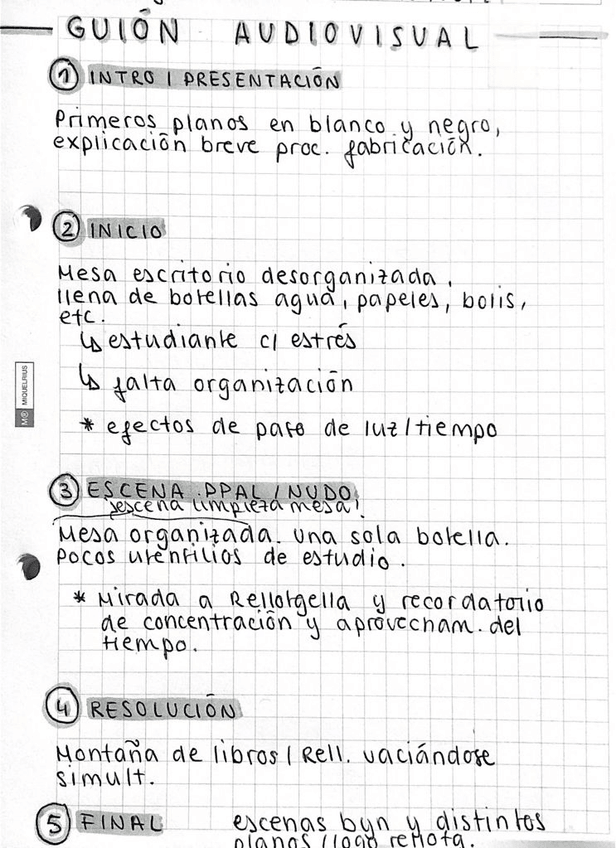 GUIÓN AUDIOVISUAL
① INTRO / PRESENTACIÓN
Primeros planos en blanco y negro,
explicación breve proc. fabricación.
② INICIO
Mesa escritorio desorganizada,
llena de botellas agua, papeles, bolis,
etc.
↳ estudiante c/ estrés
↳ falta organización
* efectos de paso de luz/tiempo
MIQUELRIUS
③ ESCENA PPAL / NUDO
¡escena limpieza mesa!
Mesa organizada. Una sola botella.
Pocos utensilios de estudio.
* Mirada a Rellotgella y recordatorio
de concentración y aprovecham. del
tiempo.
④ RESOLUCIÓN
Montaña de libros / Rell. vaciándose
simult.
⑤ FINAL escenas byn y distintos
planos